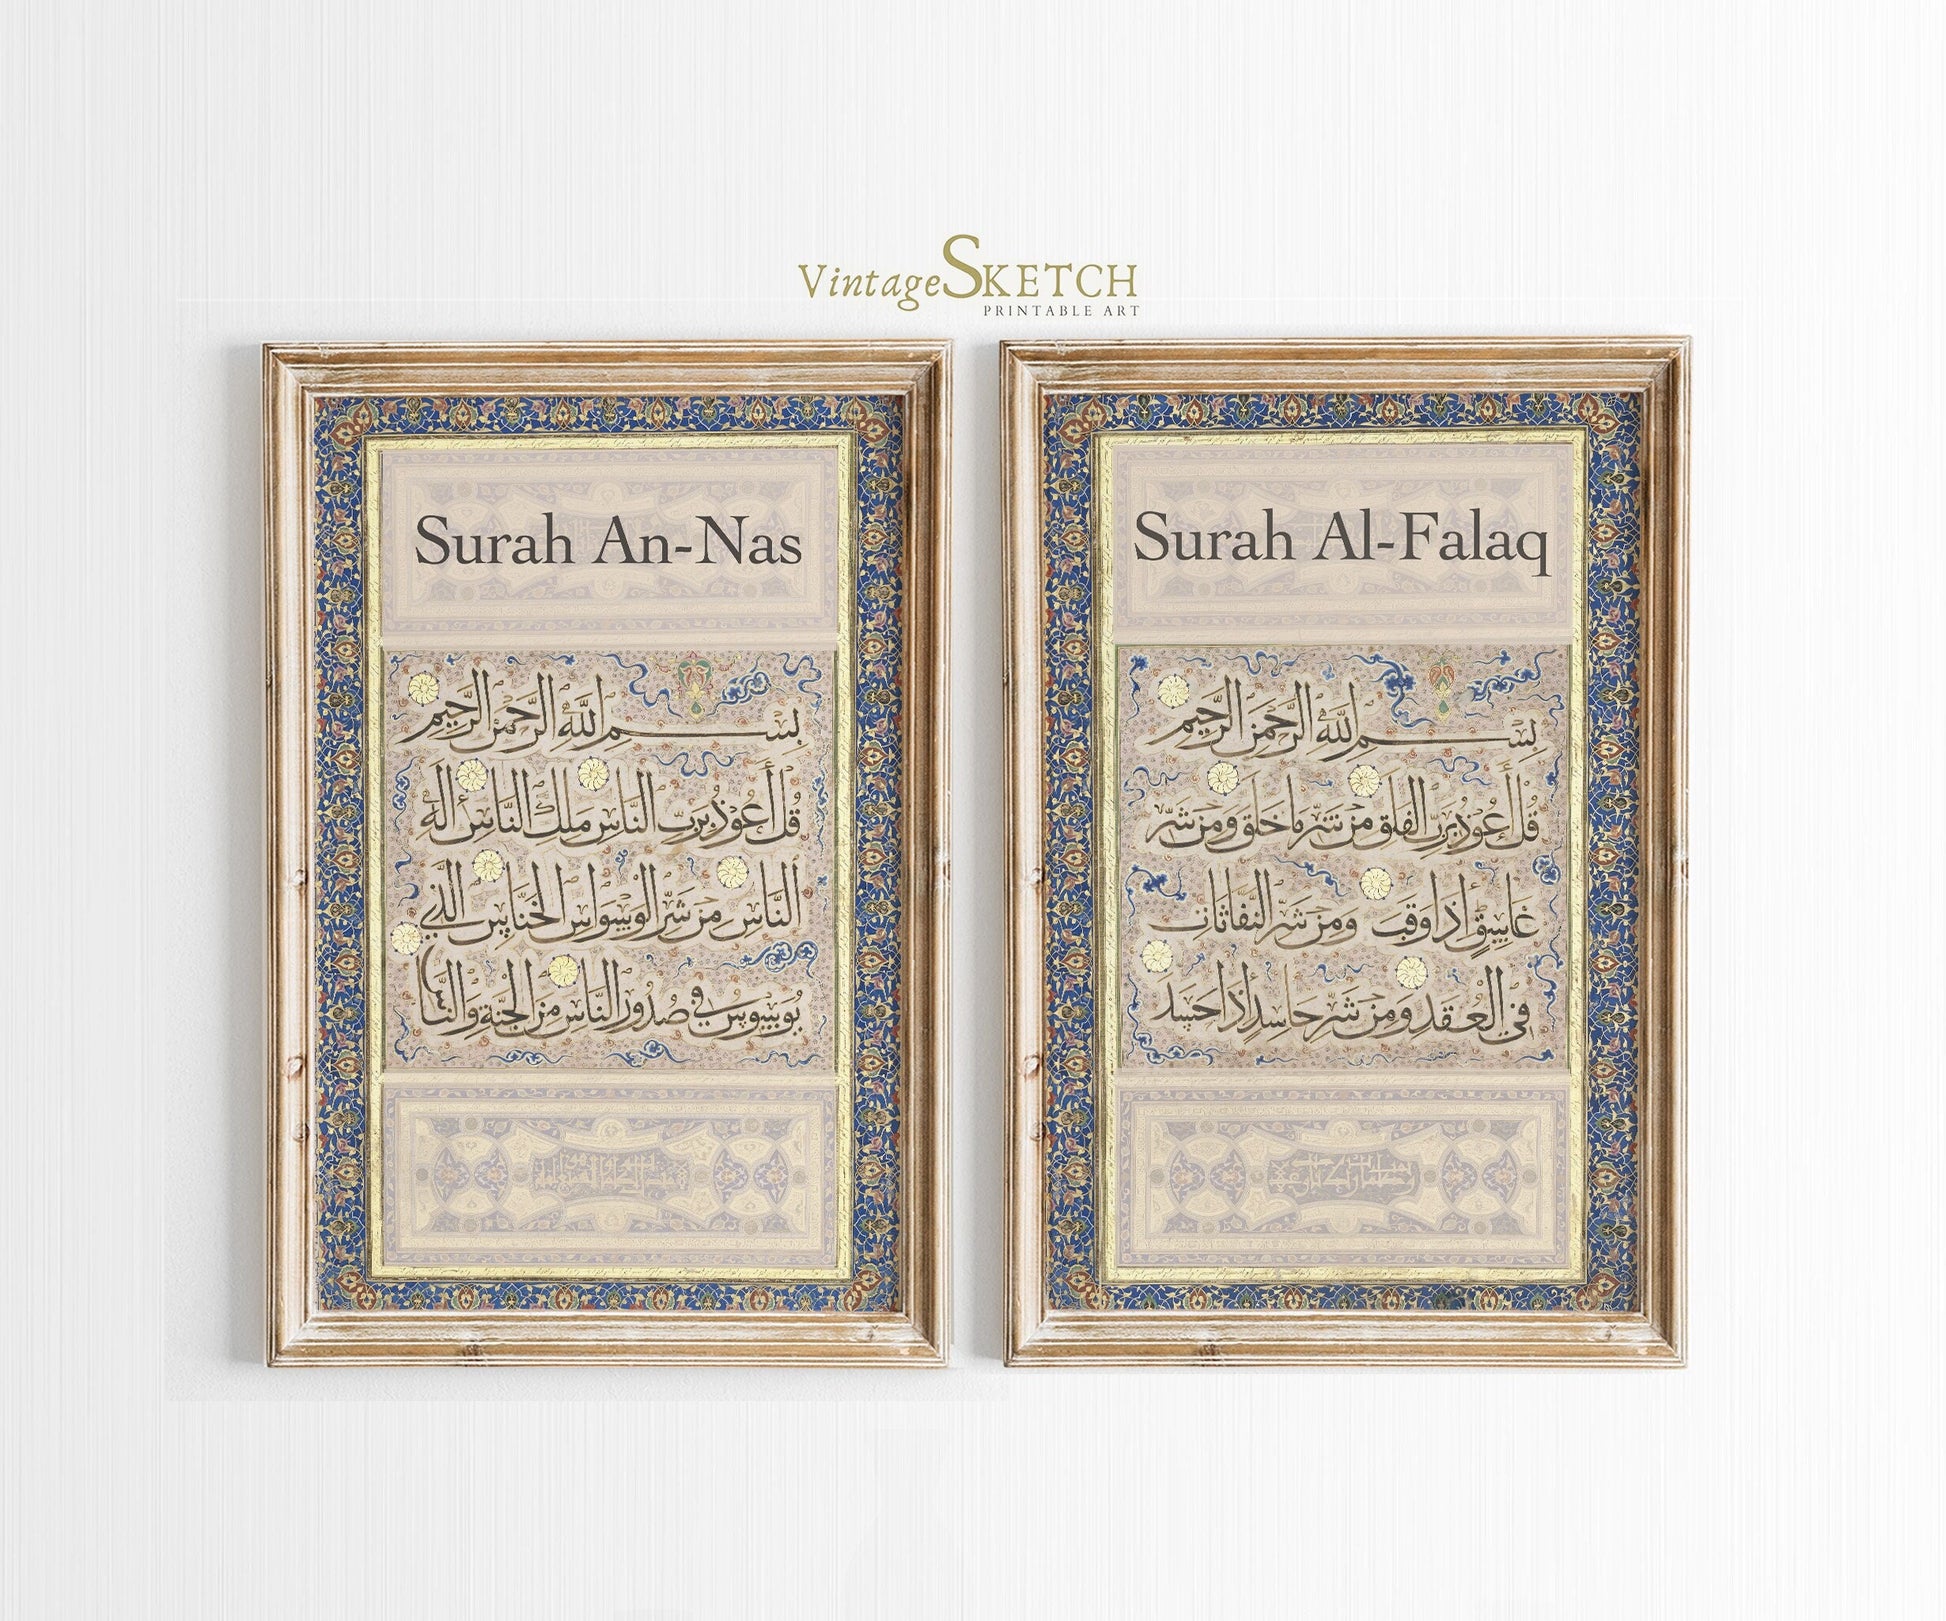 VintageSKETCH
PRINTABLE ART
Surah An-Nas
بِسْمِ اللَّهِ الرَّحْمٰنِ الرَّحِيمِ
قُلْ أَعُوذُ بِرَبِّ النَّاسِ مَلِكِ النَّاسِ إِلَهِ
النَّاسِ مِنْ شَرِّ الْوَسْوَاسِ الْخَنَّاسِ الَّذِي
يُوَسْوِسُ فِي صُدُورِ النَّاسِ مِنَ الْجِنَّةِ وَالنَّاسِ
Surah Al-Falaq
بِسْمِ اللَّهِ الرَّحْمٰنِ الرَّحِيمِ
قُلْ أَعُوذُ بِرَبِّ الْفَلَقِ مِنْ شَرِّ مَا خَلَقَ وَمِنْ شَرِّ
غَاسِقٍ إِذَا وَقَبَ وَمِنْ شَرِّ النَّفَّاثَاتِ
فِي الْعُقَدِ وَمِنْ شَرِّ حَاسِدٍ إِذَا حَسَدَ